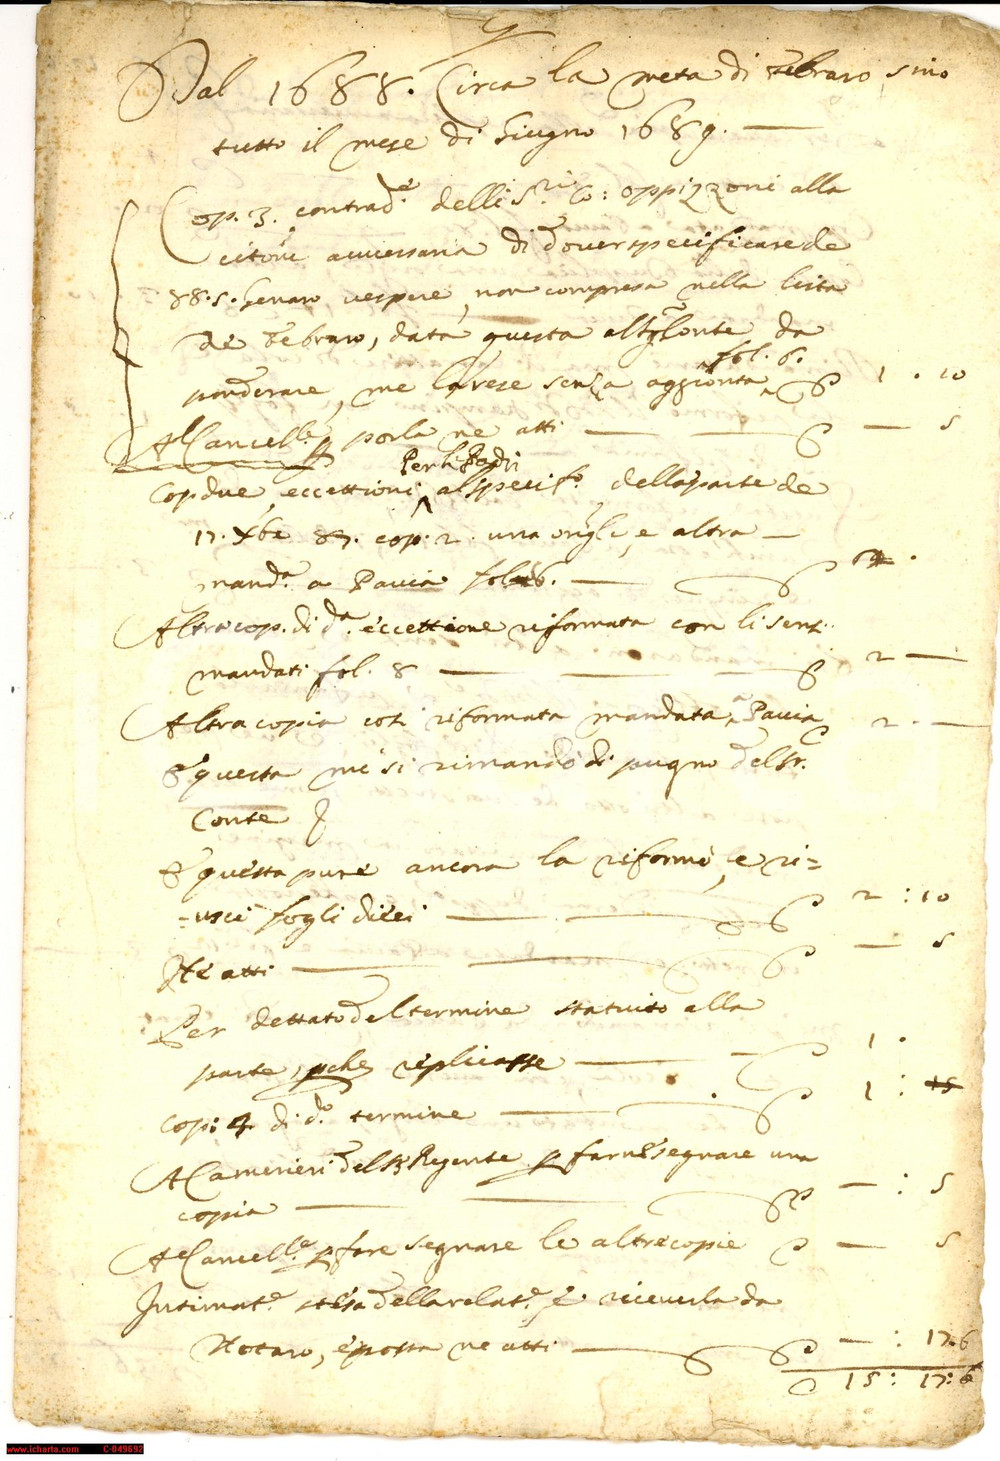 Dal 1688. Circa la meta di febraro, sino
tutto il mese di Giugno 1689.
Cop. 3. contrad.e delli S.ri Co: Oppizzoni alla
citōne auuersaria di douer specificare de
88. 5. Genaro vespere, non compresa nella lista
de febraro, data questa al Conte da
ponderare, me la rese senza aggionta fol. 6. 1 . 10
Al Cancell.e p porla ne atti — 5
Cop due, eccettioni Per li Sodi al specif.o della parte de
17. Xbe 87. cop. 2. una orig.le, e altra
mand.a a Pauia fol. 6. 4 .
Altra cop. di d.a eccettione riformata con li sent.
mandati fol. 8 2 —
Altra copia così riformata mandata a Pauia 2 . —
E questa me si rimandò di pugno del Sr.
Conte
E questa pure ancora la riformò, e ri=
=uscì fogli dieci 2 : 10
Ne atti — 5
Per dettato del termine statuito alla
parte, pche replicasse 1 .
Cop: 4 di d.o termine 1 : 15
A Camerieri del Sr Regente p farne segnare una
copia — : 5
Al Cancell.e p fare segnare le altre copie — 5
Intimat.e stesa della relat.e, e riceuerla da
Notaro, e posta ne atti — : 17. 6
15 : 17 : 6
www.icharta.com C-049692